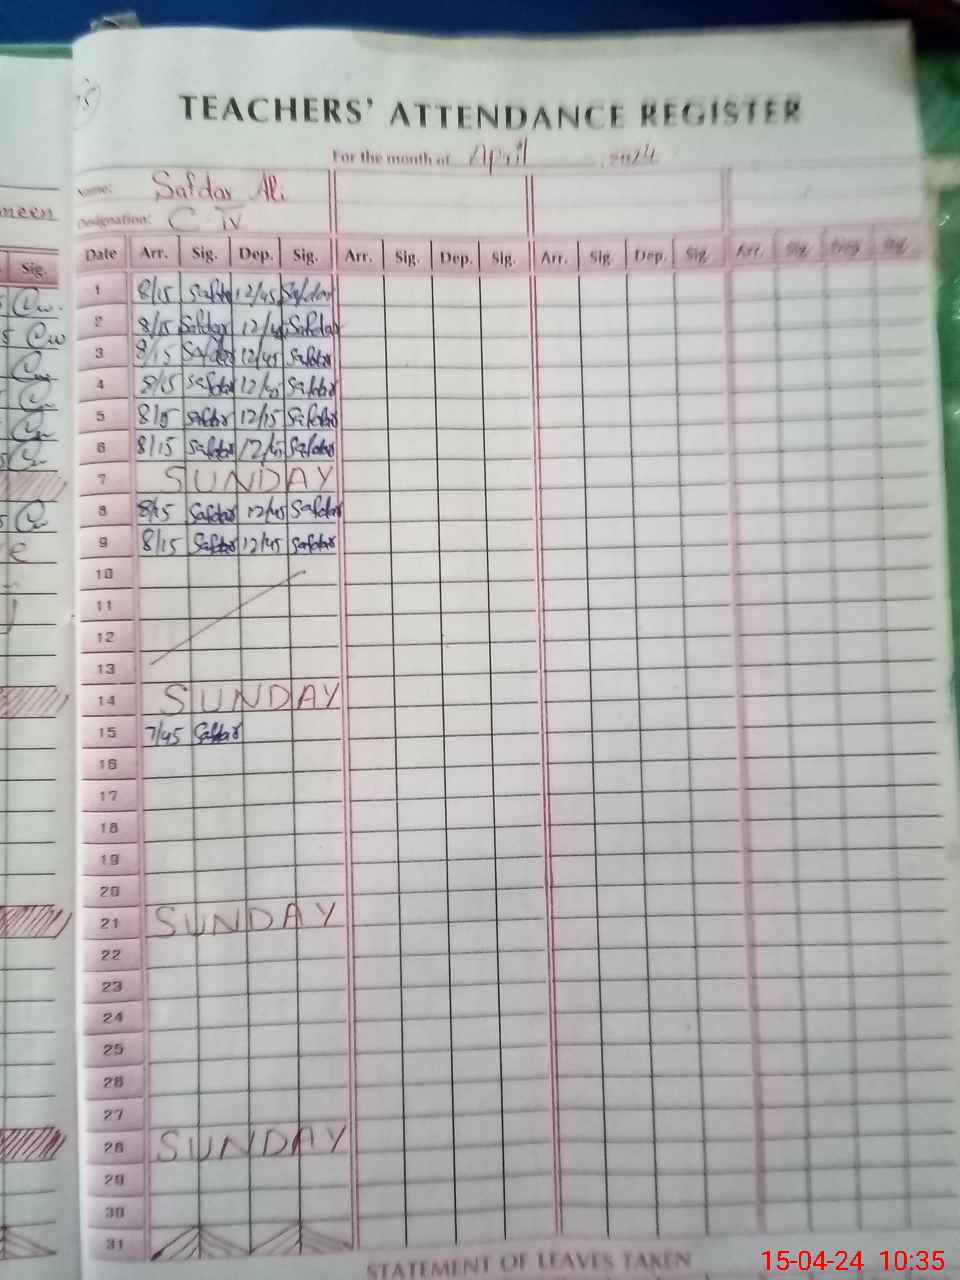 TEACHERS' ATTENDANCE REGISTER
For the month of April 2024
Name: Safdar Ali
Designation: C IV
Sig.
Date Arr. Sig. Dep. Sig. Arr. Sig. Dep. Sig. Arr. Sig. Dep. Sig. Arr. Sig. Dep. Sig.
1 8/15 Safdar 12/45 Safdar
2 8/15 Safdar 12/45 Safdar
3 8/15 Safdar 12/45 Safdar
4 8/15 Safdar Safdar
5 8/15 Safdar 12/15 Safdar
6 8/15 Safdar Safdar
7 SUNDAY
8 8/15 Safdar 12/45 Safdar
9 8/15 Safdar 12/45 Safdar
10
11
12
13
14 SUNDAY
15 7/45 Safdar
16
17
18
19
20
21 SUNDAY
22
23
24
25
26
27
28 SUNDAY
29
30
31
STATEMENT OF LEAVES TAKEN
15-04-24 10:35